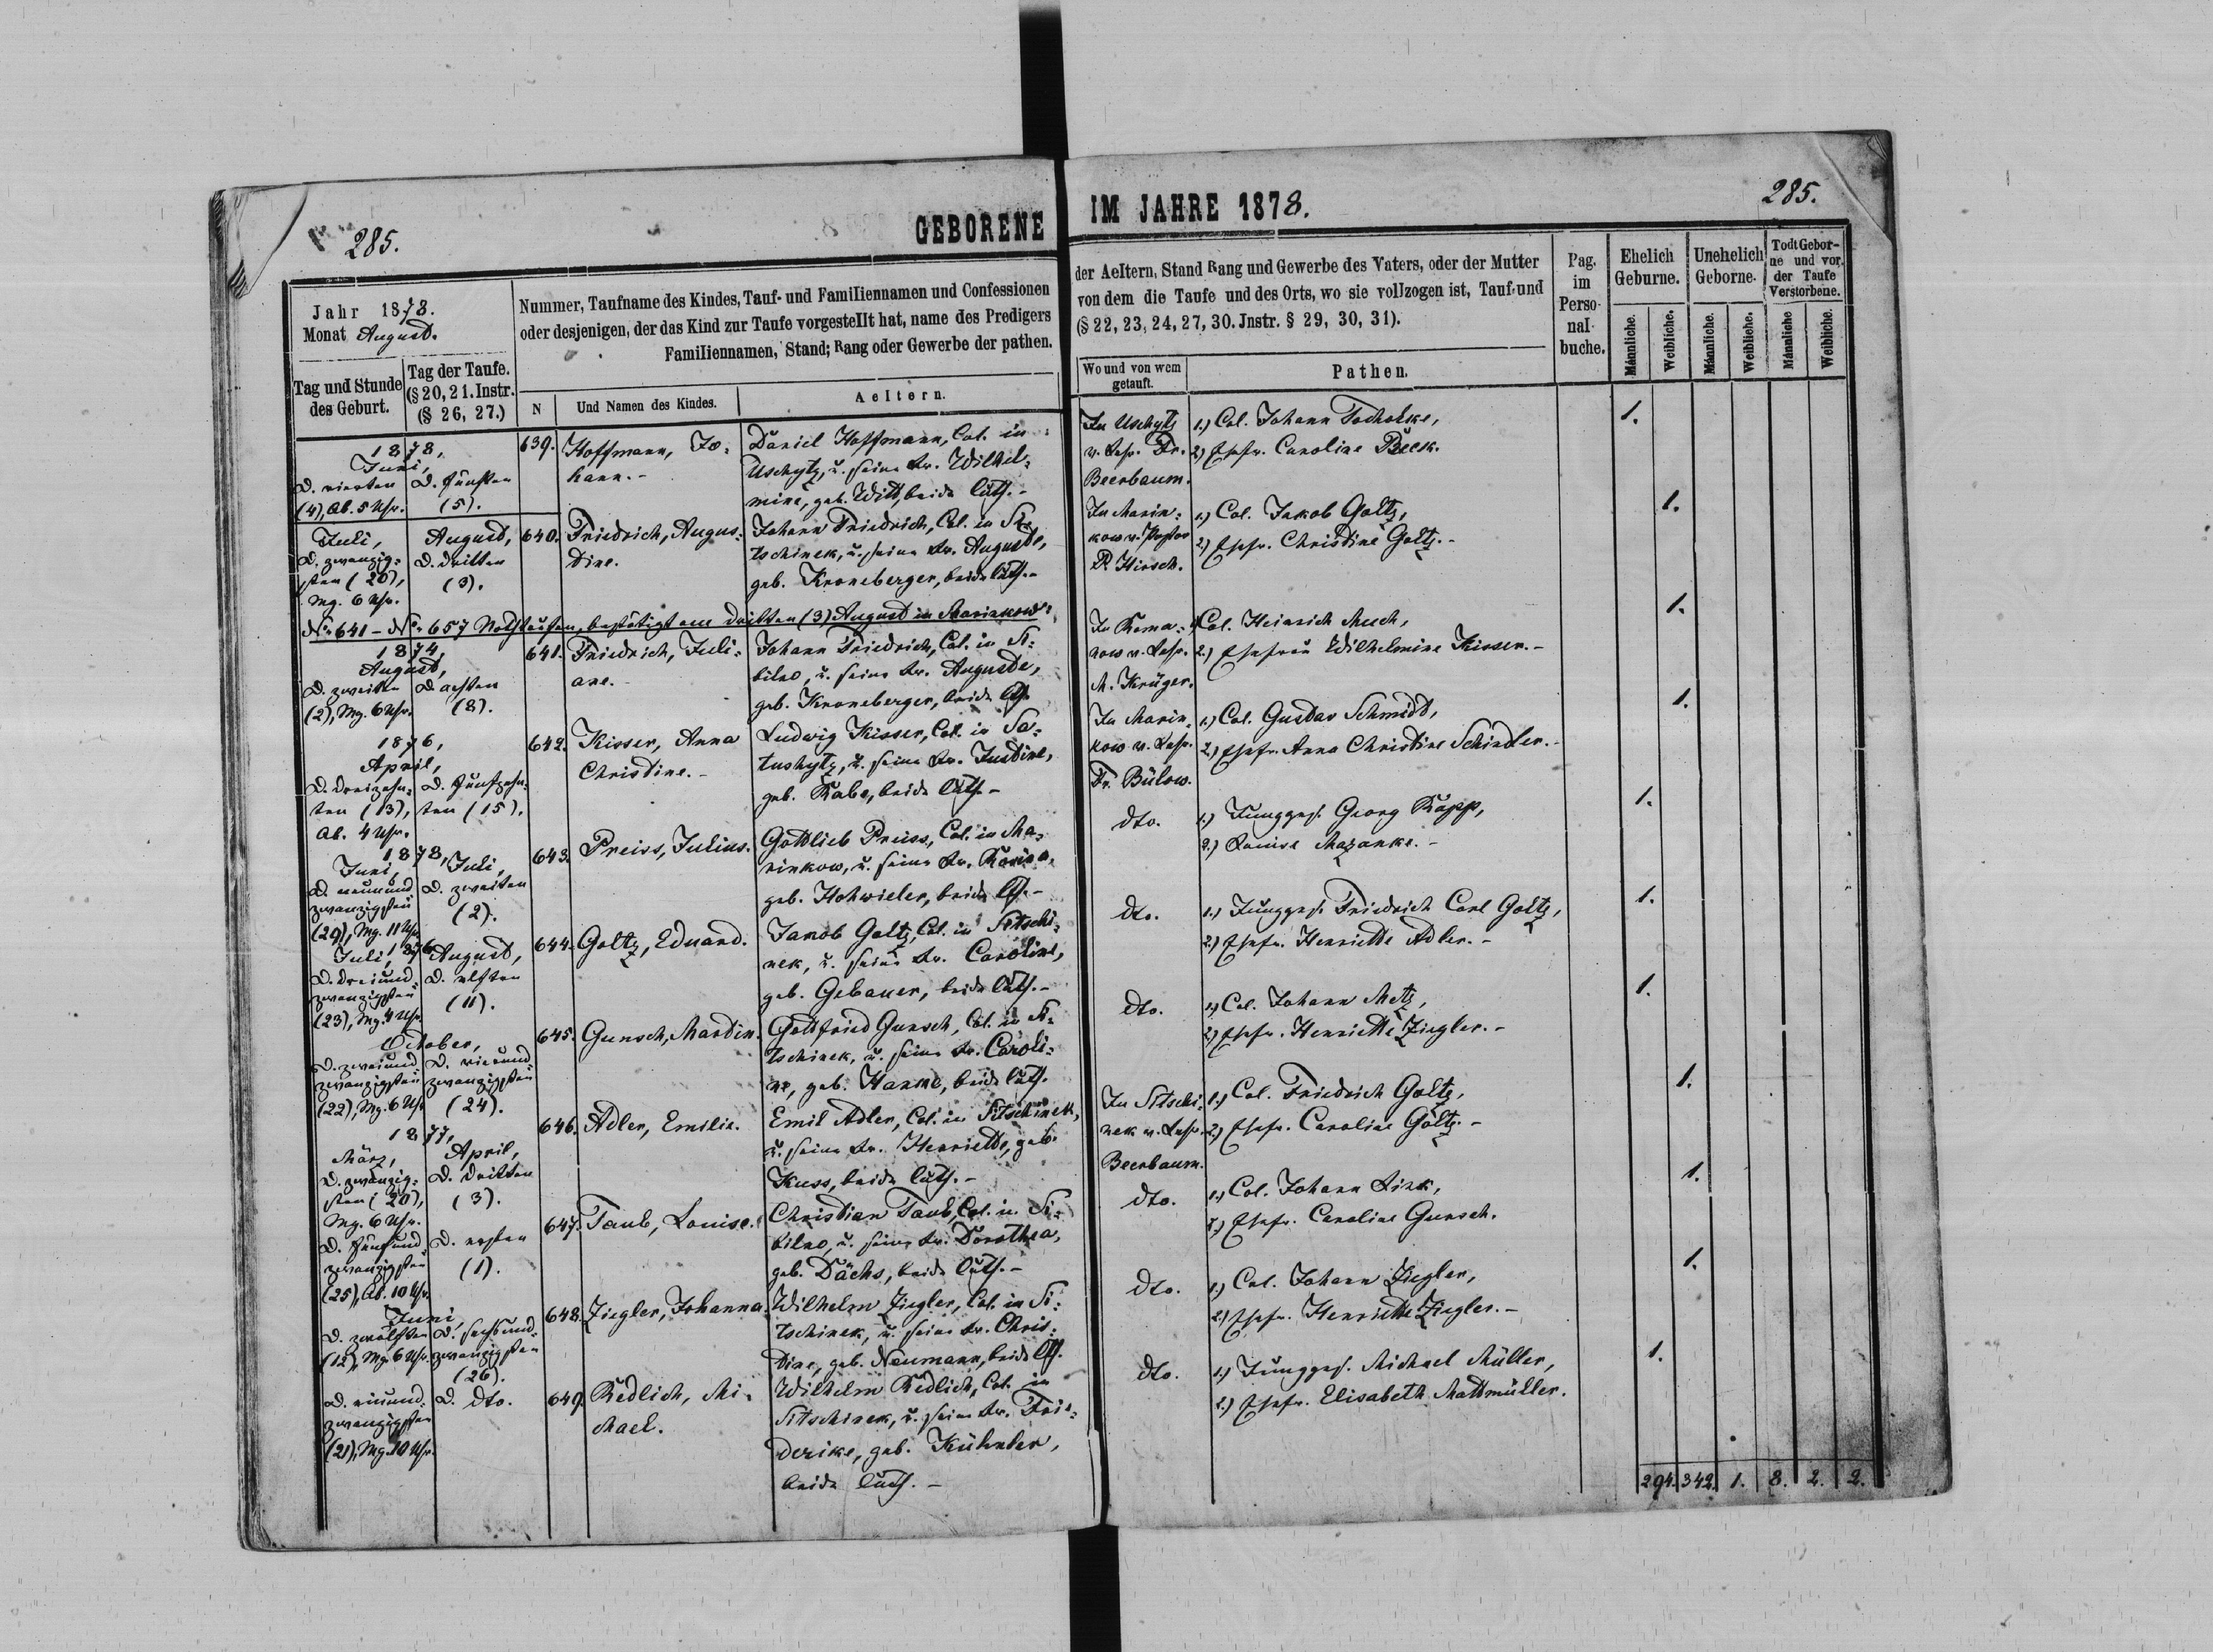 285.
GEBORENE
Jahr 1878.
Monat August.
Nummer, Taufname des Kindes, Tauf- und Familiennamen und Confessionen
oder desjenigen, der das Kind zur Taufe vorgestellt hat, name des Predigers
Familiennamen, Stand; Rang oder Gewerbe der pathen.
Tag und Stunde
des Geburt.
Tag der Taufe.
(§ 20, 21. Instr.
(§ 26, 27.)
N
Und Namen des Kindes.
Aeltern.
1878,
Juni,
D. vierten
(4), Ab. 5 Uhr.
D. fünften
(5).
639.
Hoffmann, Jo-
hann.-
Daniel Hoffmann, Col. in
Uschytz, u. seine Fr. Wilhel-
mine, geb. Witt, beide luth.-
Juli,
D. zwanzig-
sten (20),
Mg. 6 Uhr.
August,
D. dritten
(3).
640.
Friedrich, Augus-
tine.
Johann Friedrich, Col. in Si-
tschinek, u. seine Fr. Auguste,
geb. Kroneberger, beide luth.-
No 641 - No 657 Nothtaufen, bestätigt am dritten (3) August in Marinkow:
1874,
August,
D. zweiten
(2), Mg. 6 Uhr.
D. achten
(8).
641.
Friedrich, Juli-
ane.
Johann Friedrich, Col. in Si-
bilno, u. seine Fr. Auguste,
geb. Kroneberger, beide lth.
1876,
April,
D. dreizehn-
ten (13),
Ab. 4 Uhr.
D. fünfzehn-
ten (15).
642.
Kisser, Anna
Christine.-
Ludwig Kisser, Col. in Sa-
tushytz, u. seine Fr. Justine,
geb. Rabe, beide luth.-
1878,
Juni,
D. neunund
zwanzigsten
(29), Mg. 11 Uhr.
Juli,
D. zweiten
(2).
643.
Preiss, Julius.
Gottlieb Preiss, Col. in Ma-
rinkow, u. seine Fr. Karina,
geb. Hohwieler, beide lth.-
1876
Juli,
D. dreiund-
zwanzigsten
(23), Mg. 4 Uhr.
August,
D. elften
(11).
644.
Goltz, Eduard.
Jakob Goltz, Col. in Sitschi-
nek, u. seine Fr. Caroline,
geb. Gebauer, beide luth.-
October,
D. zweiund
zwanzigsten
(22), Mg. 6 Uhr
D. vierund
zwanzigsten
(24).
645.
Gunsch, Martin.
Gottfried Gunsch, Col. in Si-
tschinek, u. seine Fr. Caroli-
ne, geb. Hanne, beide luth.
1877,
März,
D. zwanzig-
sten (20),
Mg. 6 Uhr.
April,
D. dritten
(3).
646.
Adler, Emilie.
Emil Adler, Col. in Sitschinek,
u. seine Fr. Henriette, geb.
Kuss, beide luth.-
D. fünfund-
zwanzigsten
(25), Ab. 10 Uhr.
D. ersten
(1).
647.
Taub, Louise.
Christian Taub, Col. in Si-
bilno, u. seine Fr. Dorothea,
geb. Dächs, beide luth.-
Juni,
D. zwölften
(12), Mg. 6 Uhr.
D. sechsund-
zwanzigsten
(26).
648.
Ziegler, Johanna.
Wilhelm Ziegler, Col. in Si-
tschinek, u. seine Fr. Chris-
tine, geb. Neumann, beide lth.
D. einund-
zwanzigsten
(21), Mg. 10 Uhr.
D. dto.
649.
Redlich, Mi-
chael.
Wilhelm Redlich, Col. in
Sitschinek, u. seine Fr. Frie-
derike, geb. Kühnler,
beide luth.-
IM JAHRE 1878.
285.
der Aeltern, Stand Rang und Gewerbe des Vaters, oder der Mutter
von dem die Taufe und des Orts, wo sie vollzogen ist, Tauf und
(§ 22, 23, 24, 27, 30. Jnstr. § 29, 30, 31).
Wo und von wem
getauft.
Pathen.
Pag.
im
Perso-
nal-
buche.
Ehelich
Geburne.
Unehelich
Geborne.
Todt Gebor-
ne und vor
der Taufe
Verstorbene.
Männliche.
Weibliche.
Männliche.
Weibliche.
Männliche
Weibliche.
In Uschytz
v. Lehr. Fr.
Beerbaum.
1.) Col. Johann Tocholke,
2.) Ehefr. Caroline Beck.
1.
In Marin-
kow v. Pastor
P. Hirsch.
1.) Col. Jakob Goltz,
2.) Ehefr. Christine Goltz.-
1.
In Roma-
now v. Lehr.
M. Krüger.
1.) Col. Heinrich Much,
2.) Ehefrau Wilhelmine Kisser.-
1.
In Marin-
kow v. Lehr.
Fr. Bülow.
1.) Col. Gustav Schmidt,
2.) Ehefr. Anna Christine Schindler.-
1.
dto.
1.) Jungges. Georg Rapp,
2.) Louise Mazanke.-
1.
dto.
1.) Jungges. Friedrich Carl Goltz,
2.) Ehefr. Henriette Adler.-
1.
dto.
1.) Col. Johann Metz,
2.) Ehefr. Henriette Ziegler.-
1.
In Sitschi-
nek v. Lehr.
Beerbaum.
1.) Col. Friedrich Goltz,
2.) Ehefr. Caroline Goltz.-
1.
dto.
1.) Col. Johann Link,
2.) Ehefr. Caroline Gunsch.
1.
dto.
1.) Col. Johann Ziegler,
2.) Ehefr. Henriette Ziegler.-
1.
dto.
1.) Jungges. Michael Müller,
2.) Ehefr. Elisabeth Mattmüller.
1.
294. 342. 1. 8. 2. 2.